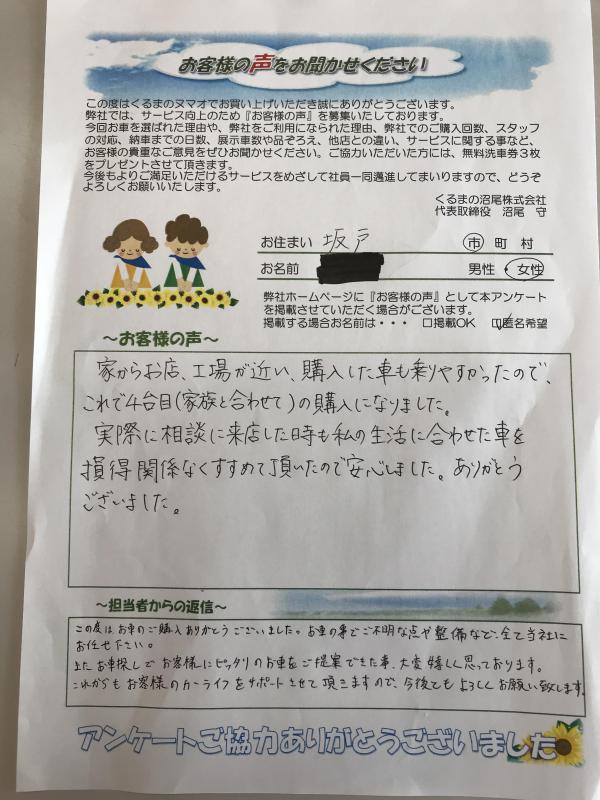 お客様の声をお聞かせください
この度はくるまのヌマオでお買い上げいただき誠にありがとうございます。
弊社では、サービス向上のため『お客様の声』を募集いたしております。
今回お車を選ばれた理由や、弊社をご利用になられた理由、弊社でのご購入回数、スタッフ
の対応、納車までの日数、展示車数や品ぞろえ、他店との違い、サービスに関する事など、
お客様の貴重なご意見をぜひお聞かせください。ご協力いただいた方には、無料洗車券3枚
をプレゼントさせて頂きます。
今後もよりご満足いただけるサービスをめざして社員一同邁進してまいりますので、どうぞ
よろしくお願いいたします。
くるまの沼尾株式会社
代表取締役 沼尾 守
お住まい 坂戸 市 町 村
お名前 男性・女性
弊社ホームページに『お客様の声』として本アンケート
を掲載させていただく場合がございます。
掲載する場合お名前は・・・ □掲載OK ☑匿名希望
～お客様の声～
家からお店、工場が近い、購入した車も乗りやすかったので、
これで4台目(家族と合わせて)の購入になりました。
実際に相談に来店した時も私の生活に合わせた車を
損得関係なくすすめて頂いたので安心しました。ありがとう
ございました。
～担当者からの返信～
この度は、お車のご購入ありがとうございました。お車の事でご不明な点や整備など、全て当社に
お任せ下さい。
またお車探しでお客様にピッタリのお車をご提案できた事、大変嬉しく思っております。
これからもお客様のカーライフをサポートさせて頂きますので、今後ともよろしくお願い致します。
アンケートご協力ありがとうございました